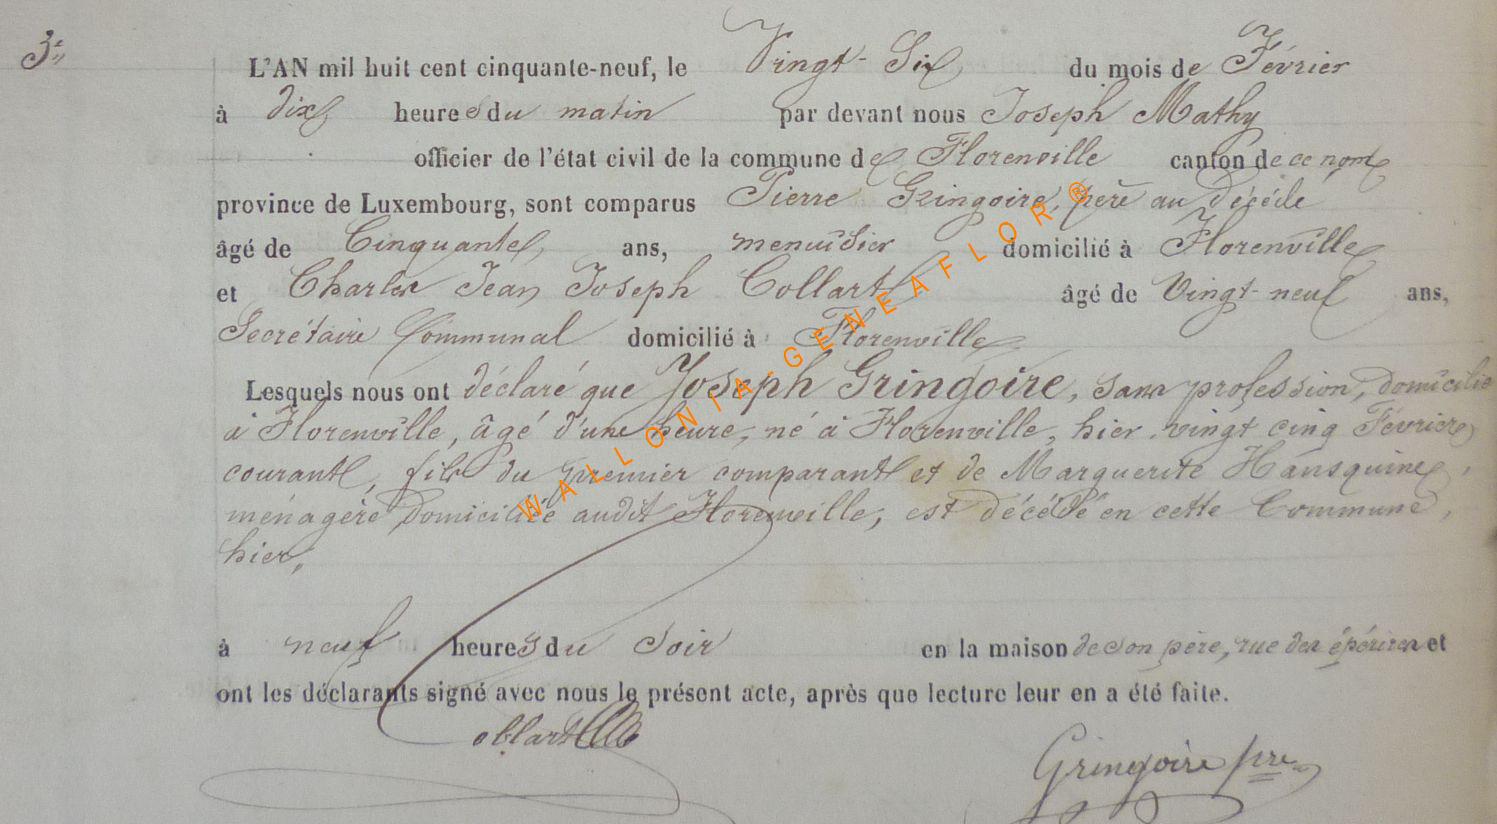 3e
L'AN mil huit cent cinquante-neuf, le Vingt-Six du mois de Février
à dix heures du matin par devant nous Joseph Mathy
officier de l'état civil de la commune de Florenville canton de ce nom
province de Luxembourg, sont comparus Pierre Gringoire, père au décédé
âgé de Cinquante ans, menuisier domicilié à Florenville
et Charles Jean Joseph Collart âgé de Vingt-neuf ans,
Secrétaire Communal domicilié à Florenville
Lesquels nous ont déclaré que Joseph Gringoire, sans profession, domicilié
à Florenville, âgé d'une heure, né à Florenville, hier vingt cinq Février
courant, fils du premier comparant et de Marguerite Hansquine,
ménagère domiciliée audit Florenville, est décédé en cette Commune,
hier,
à neuf heures du soir en la maison de son père, rue des épérires et
ont les déclarants signé avec nous le présent acte, après que lecture leur en a été faite.
Collart
Gringoire pre
WALLONIA-GENEAFLOR®